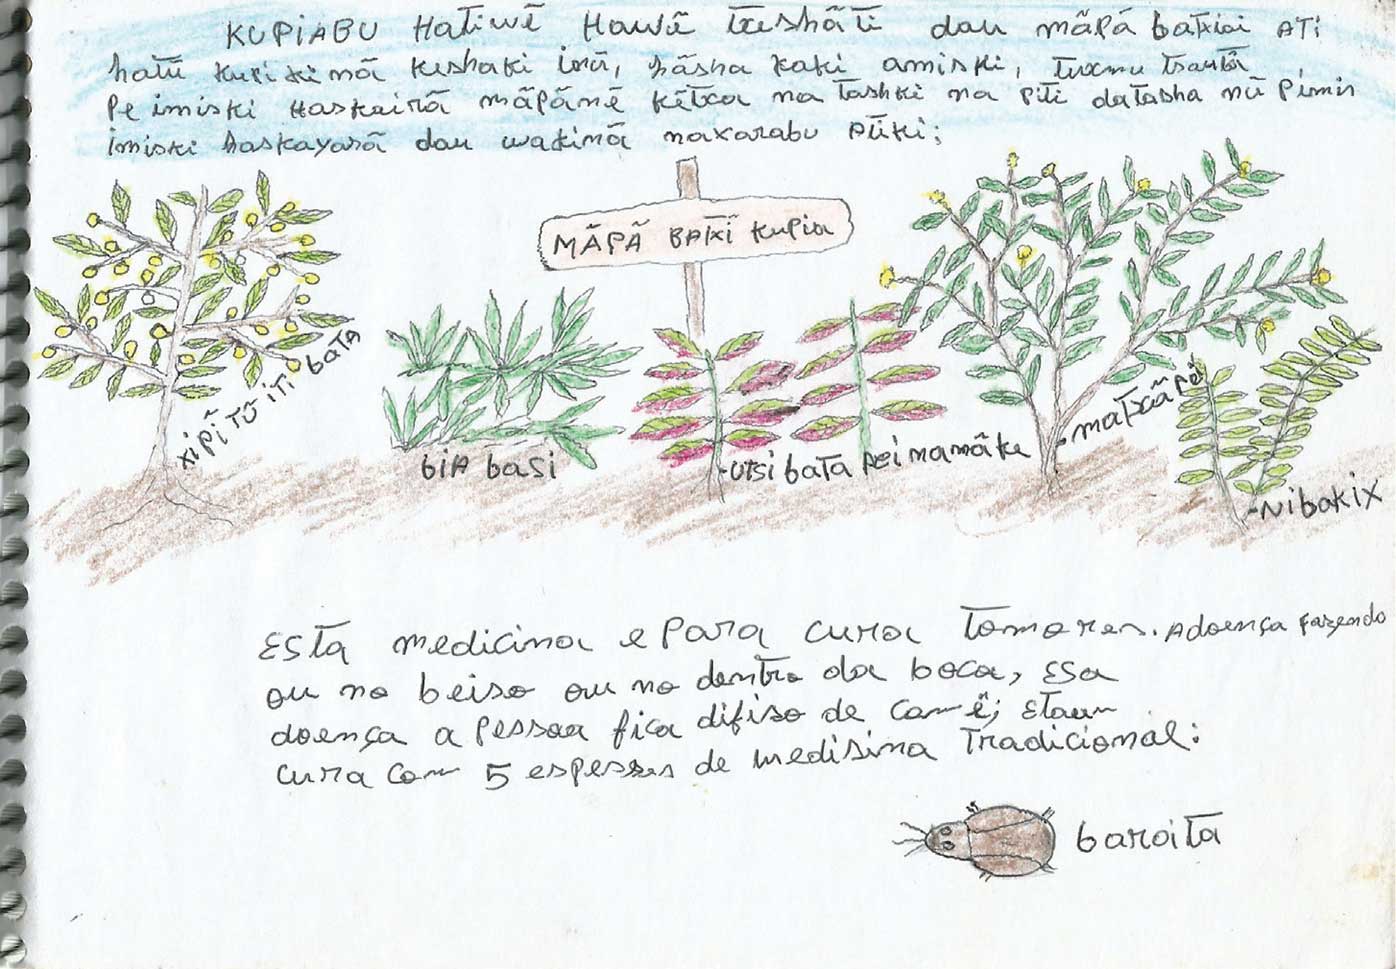 KUPIABU Hatiwẽ Hawẽ teshãti dau mãpá batxiai ATi
hatũ kupi kimã keshaki inũ, hãsha kaki amiski, tuxmu tsautã
Pe imiski Haskairã mãpãnẽ kẽtxa na tashki na piti datasha nũ Pimin
imiski haskayarã dau wakimã naxarabu Aũki;
MÃPÃ BATXĨ kupia
xiPĩTũ iTi baTa
biA basi
UTSi bata
Pei mamãke
matxãpẽ
Nibakix
ESTa medicina e Para cura tomores. Adoença fazendo
ou no beiso ou no dentro da boca, Esa
doença a Pessoa fica difiso de comê; Etaum
cura com 5 espesses de medisina Tradicional:
baroiTa